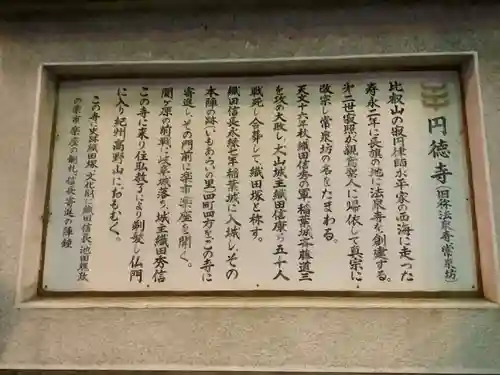 円徳寺（旧称法泉寺・常泉坊）
比叡山の寂円律師水平家の西海に走った
寿永二年に長旗の地に法泉寺を創建する。
第二世寂照が親鸞聖人に帰依して真宗に
改宗し常泉坊の名をたまわる。
天文十六年秋織田信秀の軍稲葉城斉藤道三
を攻め大敗し、犬山城主織田信康ら五十人
戦死し合葬して、織田塚と称す。
織田信長永禄七年稲葉城に入城し、その
本陣の跡（いもあらいの里二町四方）をこの寺に
寄進し、その門前に楽市・楽座を開く。
関ヶ原の前戦に岐阜城落ち、城主織田秀信
この寺に来り住職敦了により剃髪して仏門
に入り紀州高野山におもむく。
この寺に史跡織田塚、文化財に織田信長、池田輝政
の楽市・楽座の制札、信長寄進の陣鐘